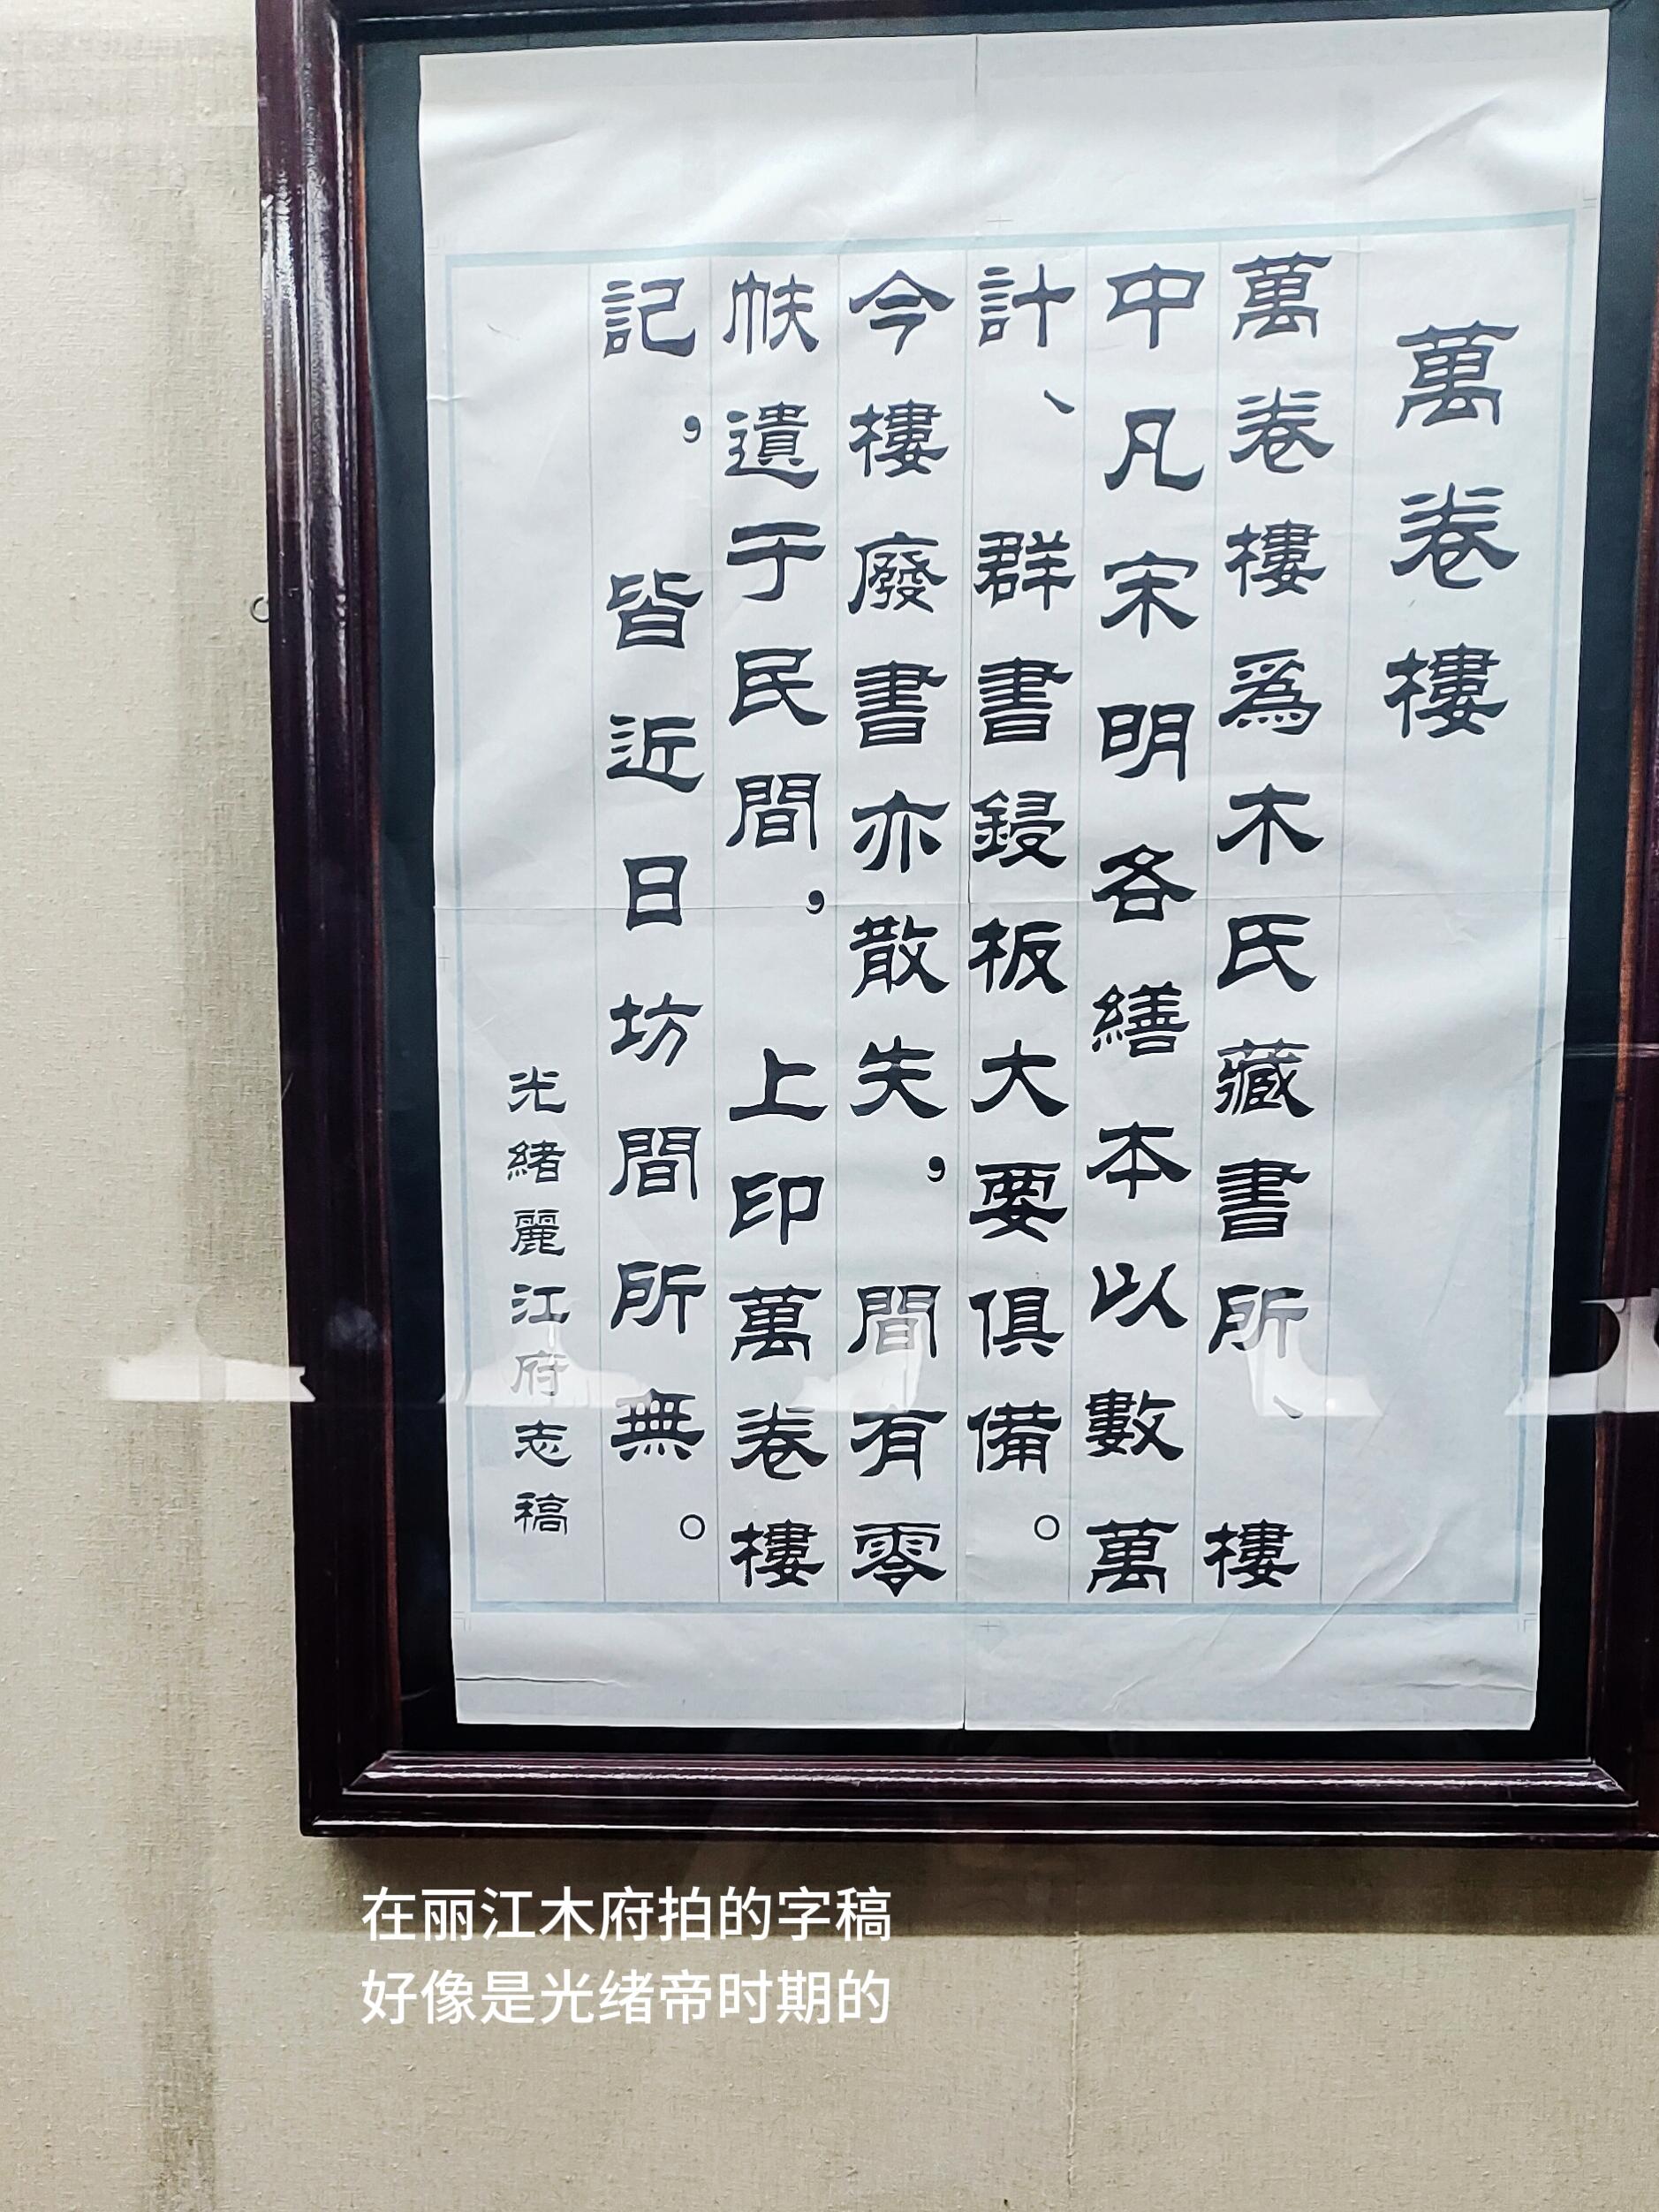 萬卷樓
萬卷樓爲木氏藏書所、樓
中凡宋明各繕本以數萬
計、群書鋟板大要俱備。
今樓廢書亦散失，間有零
帙遺于民間，上印萬卷樓
記，皆近日坊間所無。
光緒麗江府志稿
在丽江木府拍的字稿
好像是光绪帝时期的